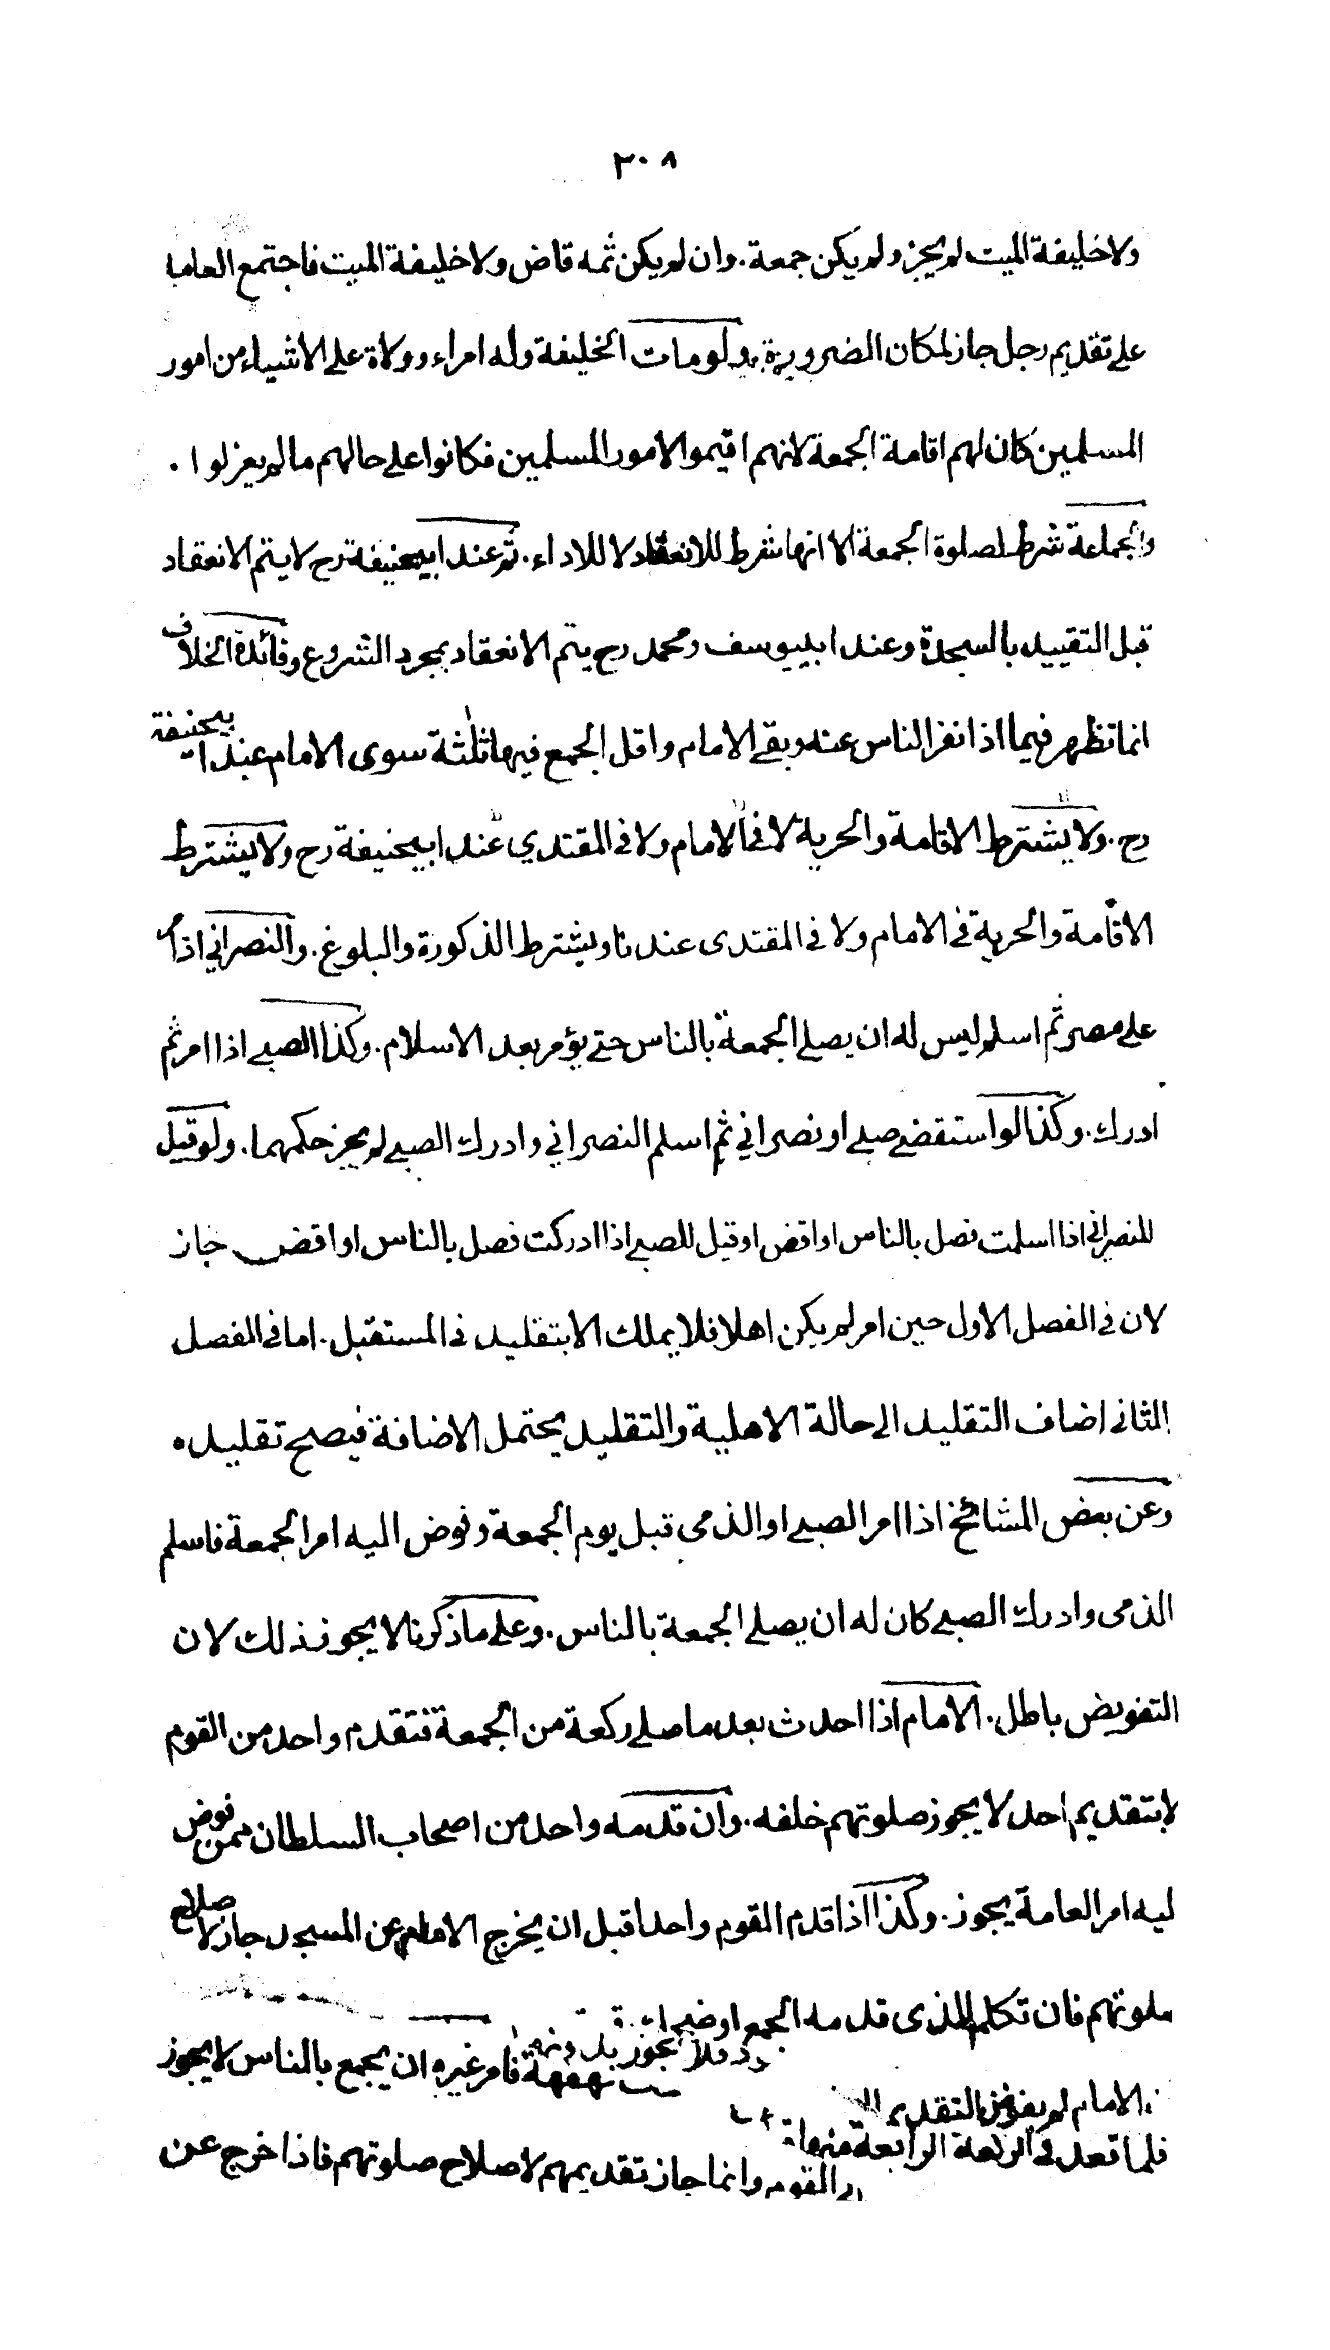 ٣٠٨
ولا خليفة الميت لم يجز ولم يكن جمعة. وان لم يكن ثمه قاض ولا خليفة الميت فاجتمع العامة
على تقديم رجل جاز لمكان الضرورة. ولو مات الخليفة وله امراء وولاة على الاشياء من امور
المسلمين كان لهم اقامة الجمعة لانهم اقيموا لامور المسلمين فكانوا على حالهم ما لم يعزلوا.
والجماعة شرط لصلوة الجمعة الا انها شرط للانعقاد لا للاداء. ثم عند ابيحنيفة رح لا يتم الانعقاد
قبل التقييد بالسجدة وعند ابييوسف ومحمد رح يتم الانعقاد بمجرد الشروع وفائدة الخلاف
انما تظهر فيما اذا نفر الناس عنه وبقي الامام واقل الجمع فيها ثلثة سوى الامام عند ابيحنيفة
رح. ولا يشترط الاقامة والحرية لا في الامام ولا في المقتدي عند ابيحنيفة رح ولا يشترط
الاقامة والحرية في الامام ولا في المقتدى عندنا ويشترط الذكورة والبلوغ. والنصراني اذا امر
على مصر ثم اسلم ليس له ان يصلي الجمعة بالناس حتى يؤمر بعد الاسلام. وكذا الصبي اذا امر ثم
ادرك. وكذا لو استقضي صبي او نصراني ثم اسلم النصراني وادرك الصبي لم يجز حكمهما. ولو قيل
للنصراني اذا اسلمت فصل بالناس او اقض او قيل للصبي اذا ادركت فصل بالناس او اقض جاز
لان في الفصل الاول حين امر لم يكن اهلا فلا يملك الا بتقليد في المستقبل. اما في الفصل
الثاني اضاف التقليد الى حالة الاهلية والتقليد يحتمل الاضافة فيصح تقليده
وعن بعض المشائخ اذا امر الصبي او الذمي قبل يوم الجمعة وفوض اليه امر الجمعة فاسلم
الذمي وادرك الصبي كان له ان يصلي الجمعة بالناس. وعلى ما ذكرنا لا يجوز ذلك لان
التفويض باطل. الامام اذا احدث بعد ما صلى ركعة من الجمعة فتقدم واحد من القوم
لا بتقديم احد لا يجوز صلوتهم خلفه. وان قدمه واحد من اصحاب السلطان ممن فوض
ليه امر العامة يجوز. وكذا اذا قدم القوم واحدا قبل ان يخرج الامام عن المسجد جاز لاصلاح
صلوتهم فان تكلم الذى قدمه الجمع او ضحك قهقهة فامر غيره ان يجمع بالناس لا يجوز
الامام لم يفوض التقديم
فلما قعد في الركعة الرابعة منها
القوم وانما جاز تقديمهم لاصلاح صلوتهم فاذا خرج عن